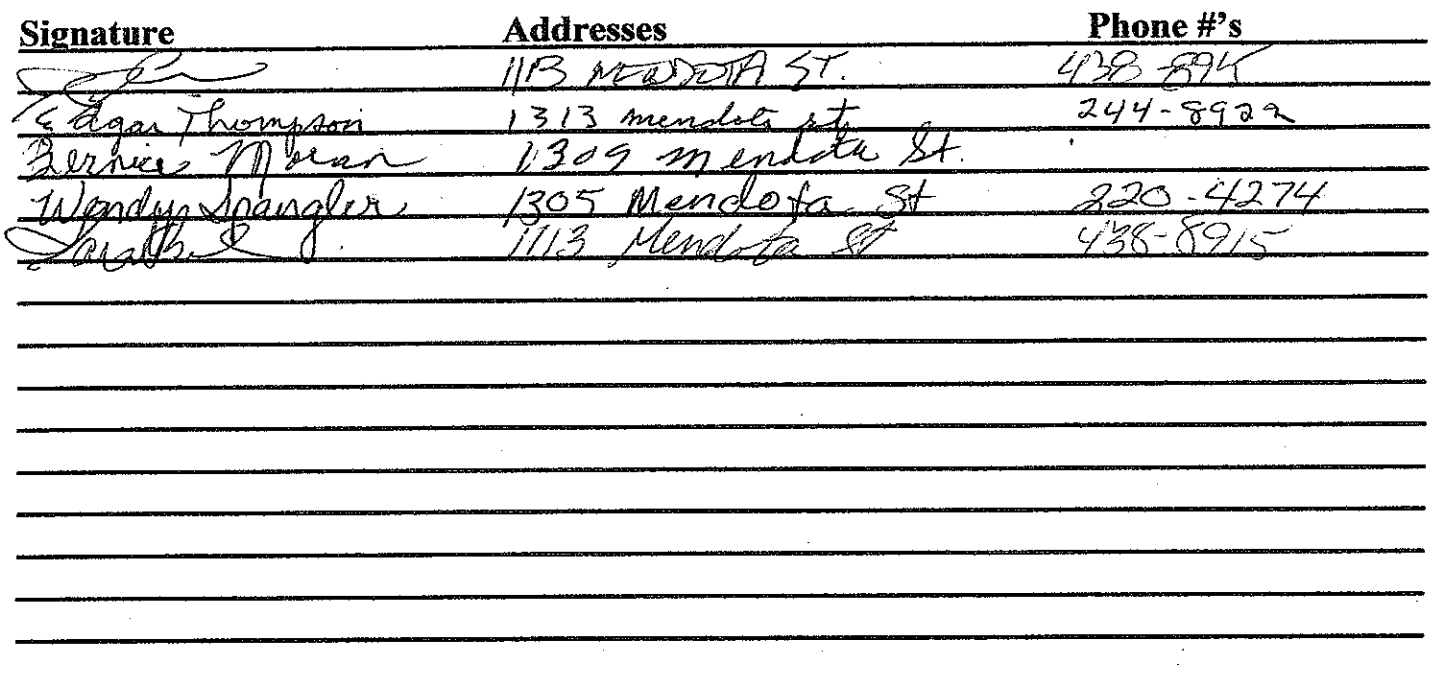 Signature Addresses Phone #'s
1113 MENDOTA ST.
Edgar Thompson 1313 mendota st. 244-8922
Bernice Moran 1309 mendota St.
Wendy Spangler 1305 Mendota St 220-4274
1113 Mendota St 438-8915